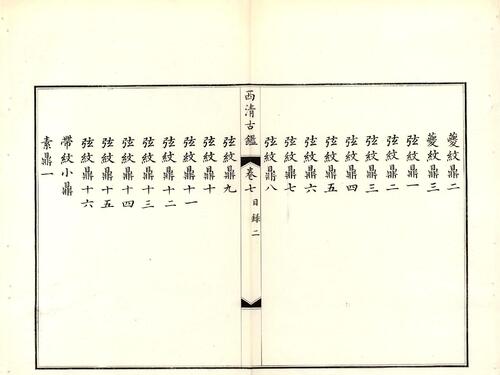 夔紋鼎二
夔紋鼎三
弦紋鼎一
弦紋鼎二
弦紋鼎三
弦紋鼎四
弦紋鼎五
弦紋鼎六
弦紋鼎七
弦紋鼎八
西清古鑑 卷七 目錄 二
弦紋鼎九
弦紋鼎十
弦紋鼎十一
弦紋鼎十二
弦紋鼎十三
弦紋鼎十四
弦紋鼎十五
弦紋鼎十六
帶紋小鼎
素鼎一